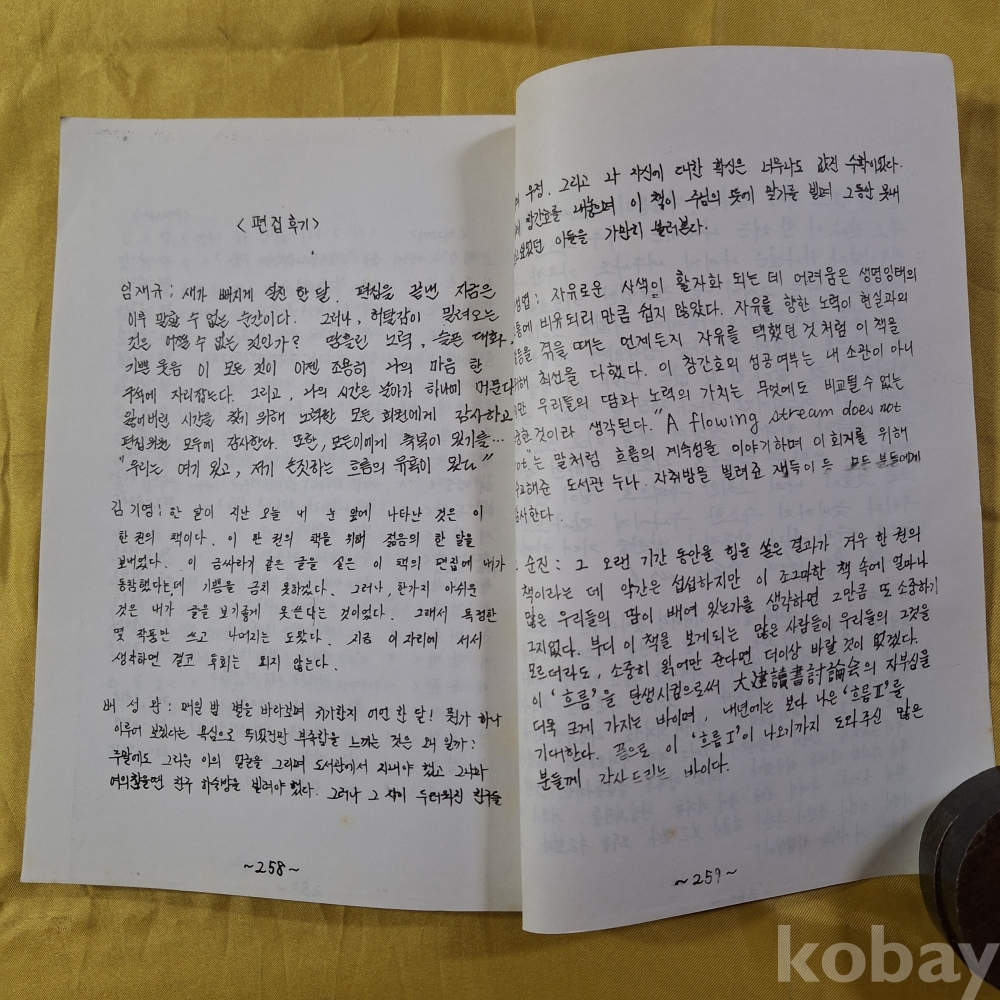 〈편집후기〉
임재규; 새가 빠지게 설친 한 달. 편집을 끝낸 지금은
이루 말할 수 없는 순간이다. 그러나, 허탈감이 밀려오는
것은 어쩔 수 없는 것인가? 땀흘린 노력, 슬픈 대화,
기쁨 웃음 이 모든 것이 이젠 조용히 나의 마음 한
구석에 자리잡는다. 그리고, 나의 시간은 날아가 하나에 머문다
잃어버린 시간을 찾기 위해 노력한 모든 회원에게 감사하고
편집위원 모두에 감사한다. 또한, 모든이에게 축복이 있기를…
"우리는 여기 있고, 저기 손짓하는 흐름의 유혹이 있다"
김기영: 한 달이 지난 오늘 내 눈 앞에 나타난 것은 이
한 권의 책이다. 이 한 권의 책을 위해 젊음의 한 달을
보내었다. 이 금싸라기 같은 글을 실은 이 책의 편집에 내가
동참했다는데 기쁨을 금치 못하겠다. 그러나, 한가지 아쉬운
것은 내가 글을 보기좋게 못쓴다는 것이었다. 그래서 독정한
몇 작품만 쓰고 나머지는 도왔다. 지금 이 자리에 서서
생각하면 결코 후회는 되지 않는다.
배성환: 매일 밤 별을 바라보며 귀가한지 어언 한 달! 뭔가 하나
이루어 보겠다는 욕심으로 뛰었건만 부족함을 느끼는 것은 왜 일까:
주말에도 그리운 이의 얼굴을 그리며 도서관에서 지내야 했고 그나마
여의찮을땐 친구 하숙방을 빌려야 했다. 그러나 그 사이 두터워진 친구들
~258~
우정, 그리고 나 자신에 대한 확신은 너무나도 값진 수확이었다.
창간호를 내놓으며 이 책이 주님의 뜻에 맞기를 빌며 그동안 못내
이들을 가만히 불러본다.
자유로운 사색이 활자화 되는 데 어려움은 생명잉태의
비유되리 만큼 쉽지 않았다. 자유를 향한 노력이 현실과의
겪을 때는 언제든지 자유를 택했던 것 처럼 이 책을
최선을 다했다. 이 창간호의 성공여부는 내 소관이 아니
우리들의 땀과 노력의 가치는 무엇에도 비교될 수 없는
것이라 생각된다. "A flowing stream does not
"는 말처럼 흐름의 계속성을 이야기하며 이 회지를 위해
도서관 누나. 자취방을 빌려준 재득이 등 모든 분들에게
감사한다.
순진: 그 오랜 기간 동안을 힘을 쏟은 결과가 겨우 한 권의
책이라는 데 약간은 섭섭하지만 이 조그마한 책 속에 얼마나
많은 우리들의 땀이 배여 있는가를 생각하면 그만큼 또 소중하기
그지없다. 부디 이 책을 보게되는 많은 사람들이 우리들의 그것을
모르더라도, 소중히 읽어만 준다면 더이상 바랄 것이 없겠다.
이 '흐름'을 탄생시킴으로써 大建讀書討論会의 자부심을
더욱 크게 가지는 바이며, 내년에는 보다 나은 '흐름Ⅱ'를
기대한다. 끝으로 이 '흐름Ⅰ'이 나오기까지 도와주신 많은
분들께 감사드리는 바이다.
~259~
kobay